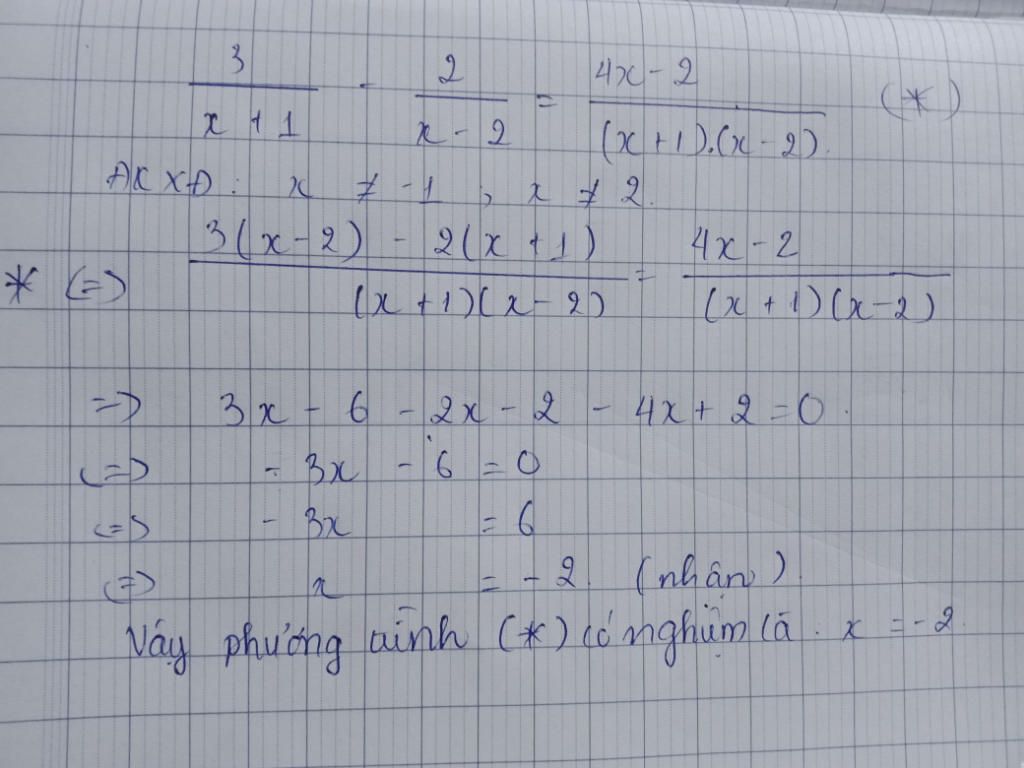 3/(x + 1) - 2/(x - 2) = (4x - 2)/((x + 1).(x - 2)) (*)
ĐKXĐ: x ≠ -1 ; x ≠ 2.
* (=) (3(x - 2) - 2(x + 1))/((x + 1)(x - 2)) = (4x - 2)/((x + 1)(x - 2))
=> 3x - 6 - 2x - 2 - 4x + 2 = 0.
(=> - 3x - 6 = 0
(=> - 3x = 6
(=> x = - 2 (nhận)
Vậy phương trình (*) có nghiệm là x = - 2.